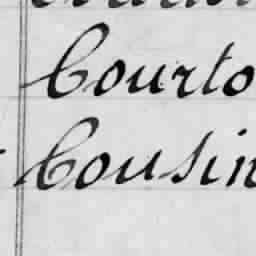 Courto
Cousin